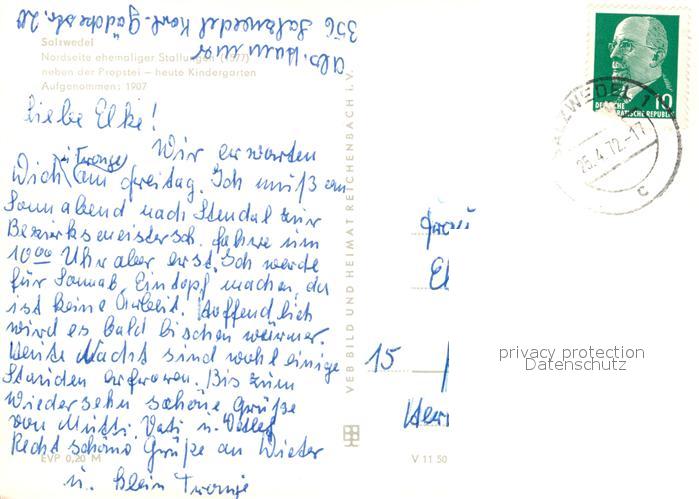 Abs. Hammer
356 Salzwedel Karl-Gädckestr. 20
Salzwedel
Nordseite ehemaliger Stallungen (1577)
neben der Propstei — heute Kindergarten
Aufgenommen: 1907
Liebe Elke!
Wir erwarten
Dich u. Swonye am Freitag. Ich muß am
Sonnabend nach Stendal zur
Bezirksmeistersch. fahre um
10 00 Uhr aber erst. Ich werde
für Sonnab. Eintopf machen, da
ist keine Arbeit. Hoffendlich
wird es bald bischen wärmer.
Heute Nacht sind wohl einige
Stauden erfroren. Bis zum
Wiedersehn schöne Grüße
von Mutti, Vati u. Detlef
Recht schöne Grüße an Dieter
u. klein
EVP 0,20 M
V 11 50
VEB BILD UND HEIMAT REICHENBACH i. V.
10
DEUTSCHE
DEMOKRATISCHE REPUBLIK
SALZWEDEL 1
26.4.72-17
c
Frau
El
15
Wer
privacy protection
Datenschutz